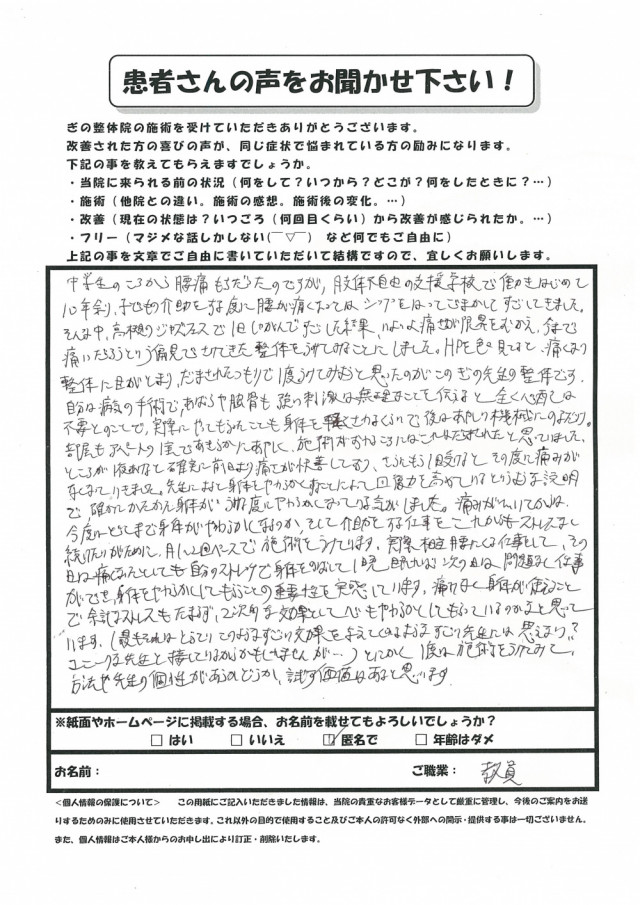 患者さんの声をお聞かせ下さい！
ぎの整体院の施術を受けていただきありがとうございます。
改善された方の喜びの声が、同じ症状で悩まれている方の励みになります。
下記の事を教えてもらえますでしょうか。
・当院に来られる前の状況（何をして？いつから？どこが？何をしたときに？…）
・施術（他院との違い。施術の感想。施術後の変化。…）
・改善（現在の状態は？いつごろ（何回目くらい）から改善が感じられたか。…）
・フリー（マジメな話しかしない(￣▽￣)　など何でもご自由に）
上記の事を文章でご自由に書いていただいて結構ですので、宜しくお願いします。
中学生のころから腰痛もちだったのですが、肢体不自由の支援学校で働きはじめて
10年余り、子どもの介助をする度に腰が痛くなってはシップをはってごまかしてすごしてきました。
そんな中、で1日すごした結果、いよいよ痛さが限界をむかえ、今まで
痛いだろうという偏見でさけてきた整体をうけてみることにしました。HPを色々見てると、痛くない
整体に目がとまり、だまされたつもりで1度うけてみようと思ったのがこのぎの先生の整体です。
自分は病気の手術であばらや股骨も強い刺激は無理なことを伝えると全く心配は
不要とのことで、実際にやってもらったことも身体を軽くさわるくらいで後はあやしい機械にのるだけ。
部屋もアパートの1室であきらかにあやしく、施術がおわるころにはこれはだまされたと思っていました。
ところが次の日になると確実に前日より痛さが改善しており、もう1回うけると、その度に痛みが
なくなっていきました。先生によると身体をやわらかくすることによって回復力を高めているというような説明
で確かにかたかった身体がうける度にやわらかくなっている気がしました。痛みがない今は、
今度はどこまで身体がやわらかくなるのか、そして介助をする仕事をこれからもストレスなく
続けたいがために、月に1、2回ペースで施術をうけてます。実際相当腰にくる仕事をして、その
日は痛くなったとしても自分のストレッチで身体をのばして1晩眠れば次の日は問題なく仕事
ができ、身体をやわらかくしてもらうことの重要性を実感しています。痛みなく身体が使えること
で余計なストレスもたまらず、2次的な効果として心もやわらかくしてもらっているのかなと思って
います。（最もそれはとてもこのようなすごい効果を与えてくれるようなすごい先生には思えない？
ユニークな先生と接しているからかもしれませんが…）とにかく1度は施術をうけてみて、
方法や先生の個性があうのかどうか、試す価値はあると思います。
※紙面やホームページに掲載する場合、お名前を載せてもよろしいでしょうか？
□ はい　□ いいえ　☑ 匿名で　□ 年齢はダメ
お名前：　ご職業： 教員
＜個人情報の保護について＞　この用紙にご記入いただきました情報は、当院の貴重なお客様データとして厳重に管理し、今後のご案内をお送
りするためのみに使用させていただきます。これ以外の目的で使用すること及びご本人の許可なく外部への開示・提供する事は一切ございません。
また、個人情報はご本人様からのお申し出により訂正・削除いたします。